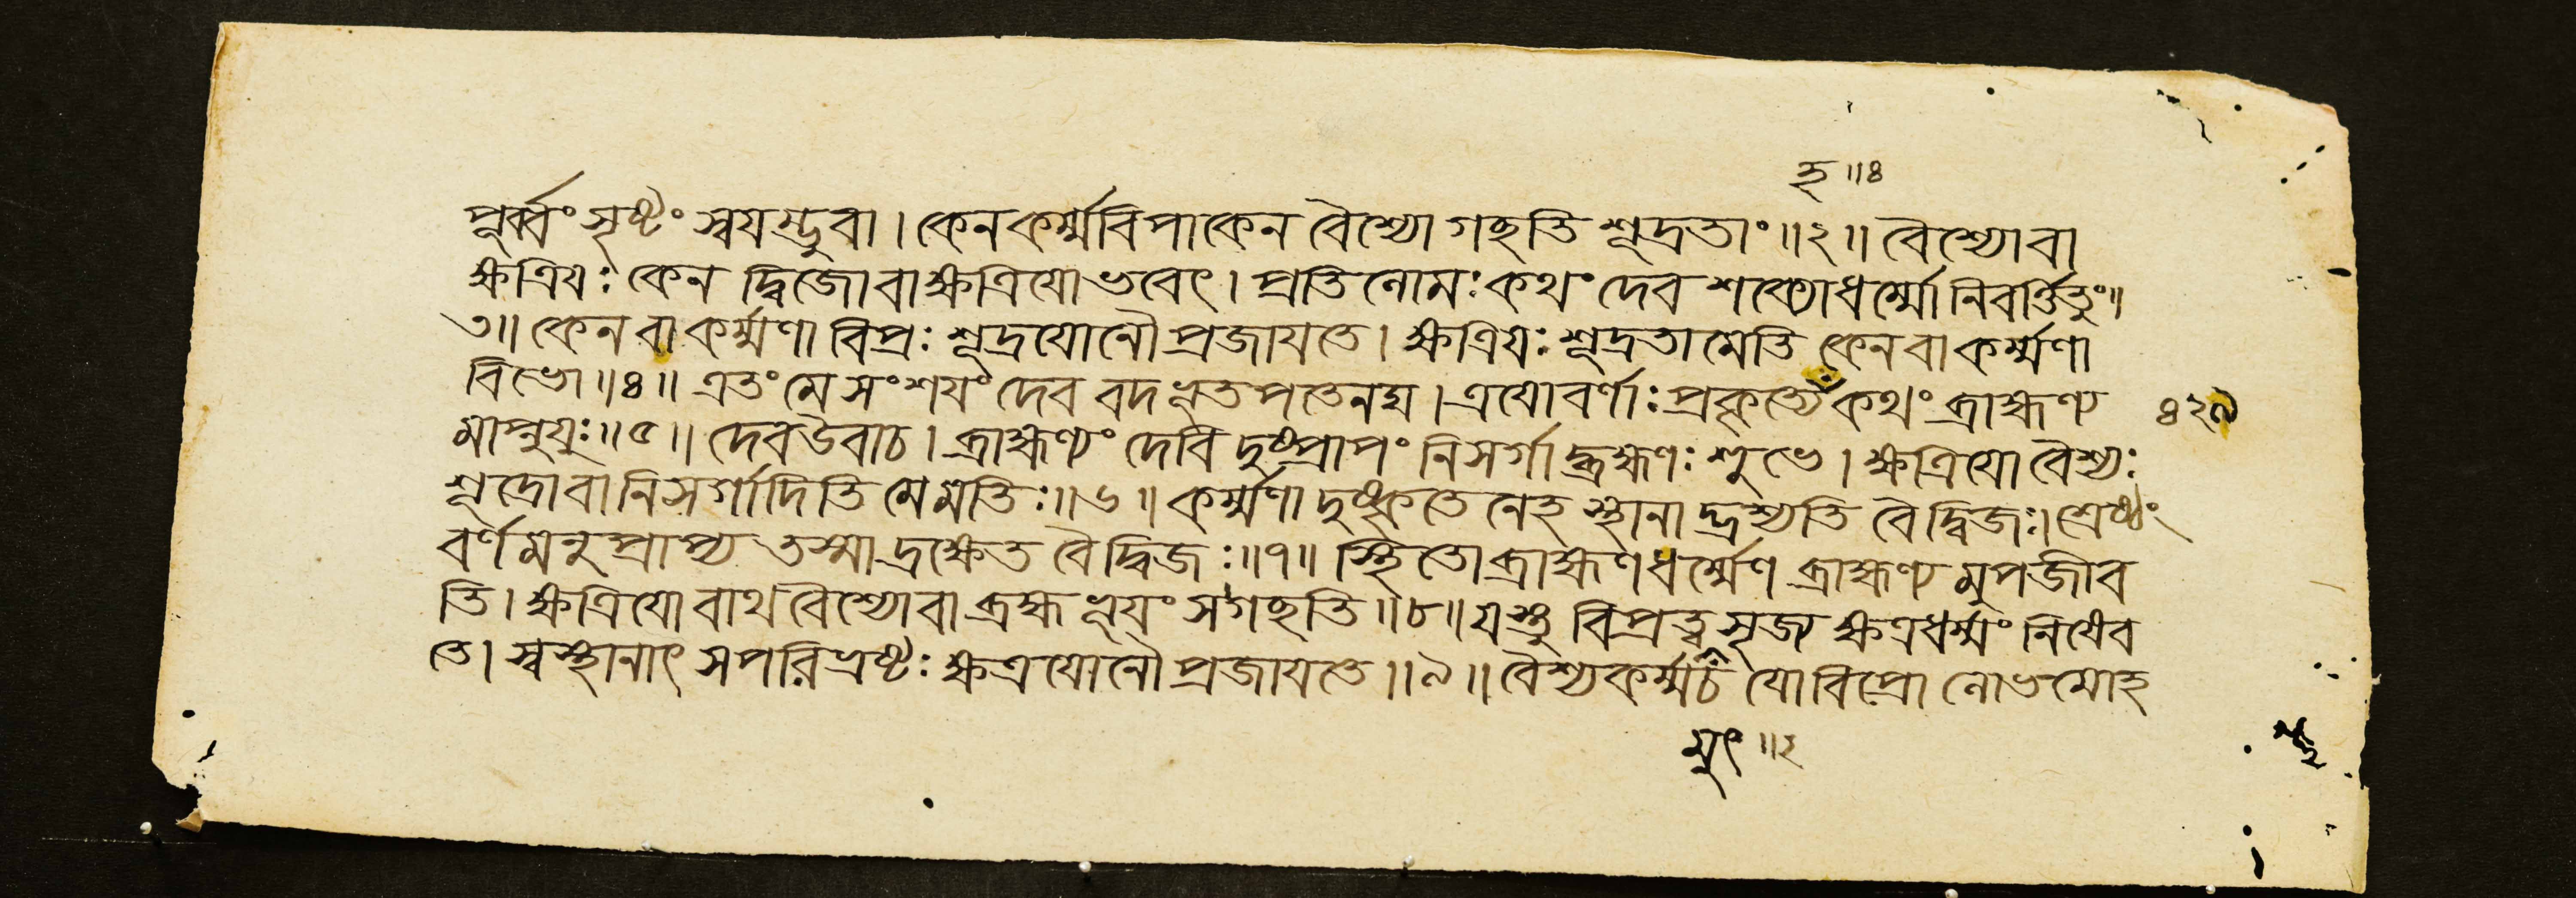 হ ॥৪
পূর্ব্বং সৃষ্টং স্বযম্ভুবা । কেন কর্ম্মবিপাকেন বৈশ্যো গছতি শূদ্রতাং ॥২॥ বৈশ্যো বা
ক্ষত্রিযঃ কেন দ্বিজো বা ক্ষত্রিযো ভবেৎ । প্রতিলোমঃ কথং দেব শক্যো ধর্ম্মো নিবর্ত্তিতুং ॥
৩॥ কেন বা কর্ম্মণা বিপ্রঃ শূদ্রযোনৌ প্রজাযতে । ক্ষত্রিযঃ শূদ্রতামেতি কেন বা কর্ম্মণা
বিভো ॥৪॥ এতং মে সংশযং দেব বদ ভূতপতেনঘ । ত্রযো বর্ণাঃ প্রকৃত্যেঁ কথং ব্রাহ্মণ্য
মাপ্নুযুঃ ॥৫॥ দেব উবাচ । ব্রাহ্মণ্যং দেবি দুষ্প্রাপং নিসর্গাদ্ব্রাহ্মণঃ শুভে । ক্ষত্রিযো বৈশ্যঃ
শূদ্রো বা নিসর্গাদিতি মে মতিঃ ॥৬॥ কর্ম্মণা দুষ্কৃতেনেহ স্থানাদ্ভ্রশ্যতি বৈ দ্বিজঃ । শ্রেষ্ঠং
বর্ণমনুপ্রাপ্য তস্মাদ্রক্ষেত বৈ দ্বিজঃ ॥৭॥ স্থিতো ব্রাহ্মণধর্ম্মেণ ব্রাহ্মণ্যমুপজীব
তি । ক্ষত্রিযো বাথ বৈশ্যো বা ব্রহ্মভূযং স গছতি ॥৮॥ যস্তু বিপ্রত্বসৃজ্য ক্ষত্রধর্ম্মং নিষেব
তে । স্বস্থানাৎ স পরিভ্রষ্টঃ ক্ষত্রযোনৌ প্রজাযতে ॥৯॥ বৈশ্যকর্ম্ম চ যো বিপ্রো লোভমোহ
৪২৯
মুৎ ॥২